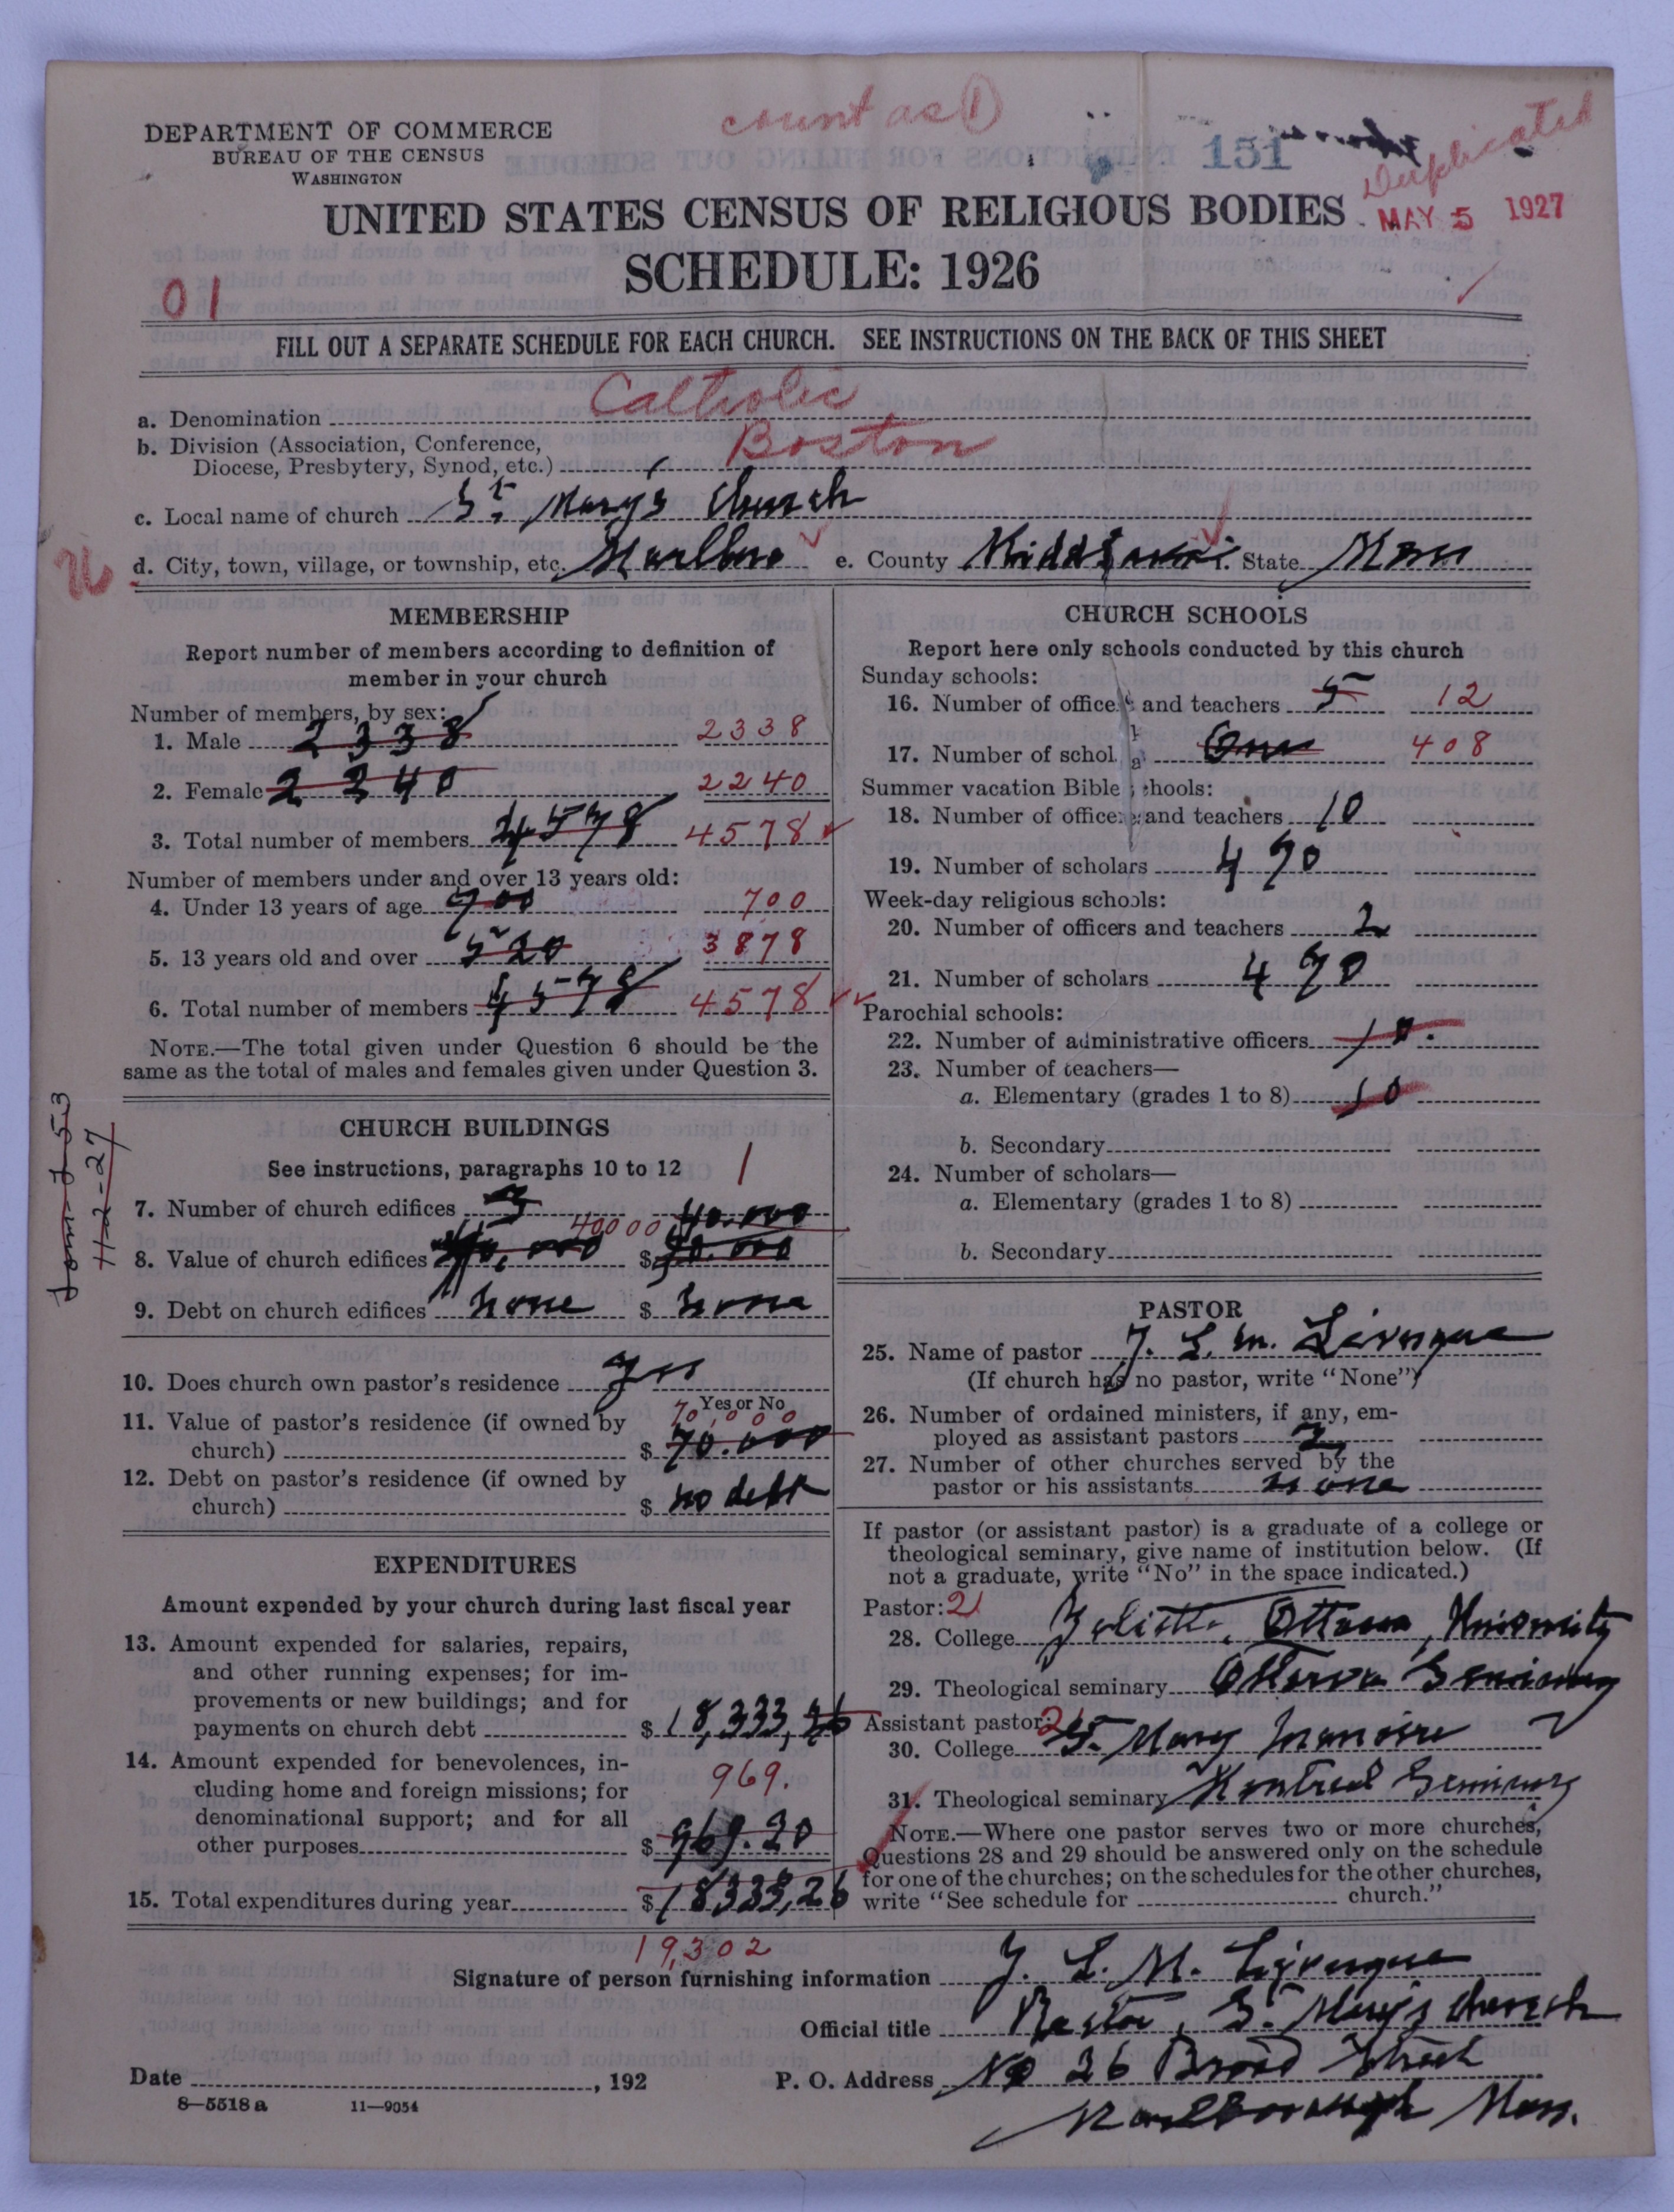 count as 1
151
Duplicated
DEPARTMENT OF COMMERCE
BUREAU OF THE CENSUS
WASHINGTON
UNITED STATES CENSUS OF RELIGIOUS BODIES
MAY 5 1927
SCHEDULE: 1926
01
FILL OUT A SEPARATE SCHEDULE FOR EACH CHURCH. SEE INSTRUCTIONS ON THE BACK OF THIS SHEET
a. Denomination Catholic
b. Division (Association, Conference,
Diocese, Presbytery, Synod, etc.) Boston
c. Local name of church St Mary's Church
d. City, town, village, or township, etc. Marlboro e. County State Mass
MEMBERSHIP
Report number of members according to definition of
member in your church
Number of members, by sex:
1. Male 2338 2338
2. Female 2240 2240
3. Total number of members 4578 4578
Number of members under and over 13 years old:
4. Under 13 years of age 700 700
5. 13 years old and over 520 3878
6. Total number of members 4578 4578
NOTE.—The total given under Question 6 should be the
same as the total of males and females given under Question 3.
CHURCH BUILDINGS
See instructions, paragraphs 10 to 12 1
7. Number of church edifices 40.000
8. Value of church edifices 40000 $
9. Debt on church edifices none $ none
10. Does church own pastor's residence yes
Yes or No
11. Value of pastor's residence (if owned by 70,000
church) $ 70.000
12. Debt on pastor's residence (if owned by
church) $ no debt
EXPENDITURES
Amount expended by your church during last fiscal year
13. Amount expended for salaries, repairs,
and other running expenses; for im-
provements or new buildings; and for
payments on church debt $ 18,333,
14. Amount expended for benevolences, in-
cluding home and foreign missions; for 969.
denominational support; and for all
other purposes $ 969.20
15. Total expenditures during year $ 18,333,26
19,302
CHURCH SCHOOLS
Report here only schools conducted by this church
Sunday schools:
16. Number of office and teachers 5 12
17. Number of schol One 408
Summer vacation Bible chools:
18. Number of office and teachers 10
19. Number of scholars 470
Week-day religious schools:
20. Number of officers and teachers 2
21. Number of scholars 470
Parochial schools:
22. Number of administrative officers 10.
23. Number of teachers—
a. Elementary (grades 1 to 8) 10
b. Secondary
24. Number of scholars—
a. Elementary (grades 1 to 8)
b. Secondary
PASTOR
25. Name of pastor J. L. M. Lévesque
(If church has no pastor, write "None")
26. Number of ordained ministers, if any, em-
ployed as assistant pastors 2
27. Number of other churches served by the
pastor or his assistants none
If pastor (or assistant pastor) is a graduate of a college or
theological seminary, give name of institution below. (If
not a graduate, write "No" in the space indicated.)
Pastor: 21
28. College Joliette, Ottawa, University
29. Theological seminary Ottawa Seminary
Assistant pastor: 21
30. College St. Mary
31. Theological seminary Montreal Seminary
NOTE.—Where one pastor serves two or more churches,
Questions 28 and 29 should be answered only on the schedule
for one of the churches; on the schedules for the other churches,
write "See schedule for church."
Signature of person furnishing information J. L. M. Lévesque
Official title Rector, St Mary's Church
Date , 192 P. O. Address No 26 Broad Street
8—5518 a 11—9054
Marlborough Mass.